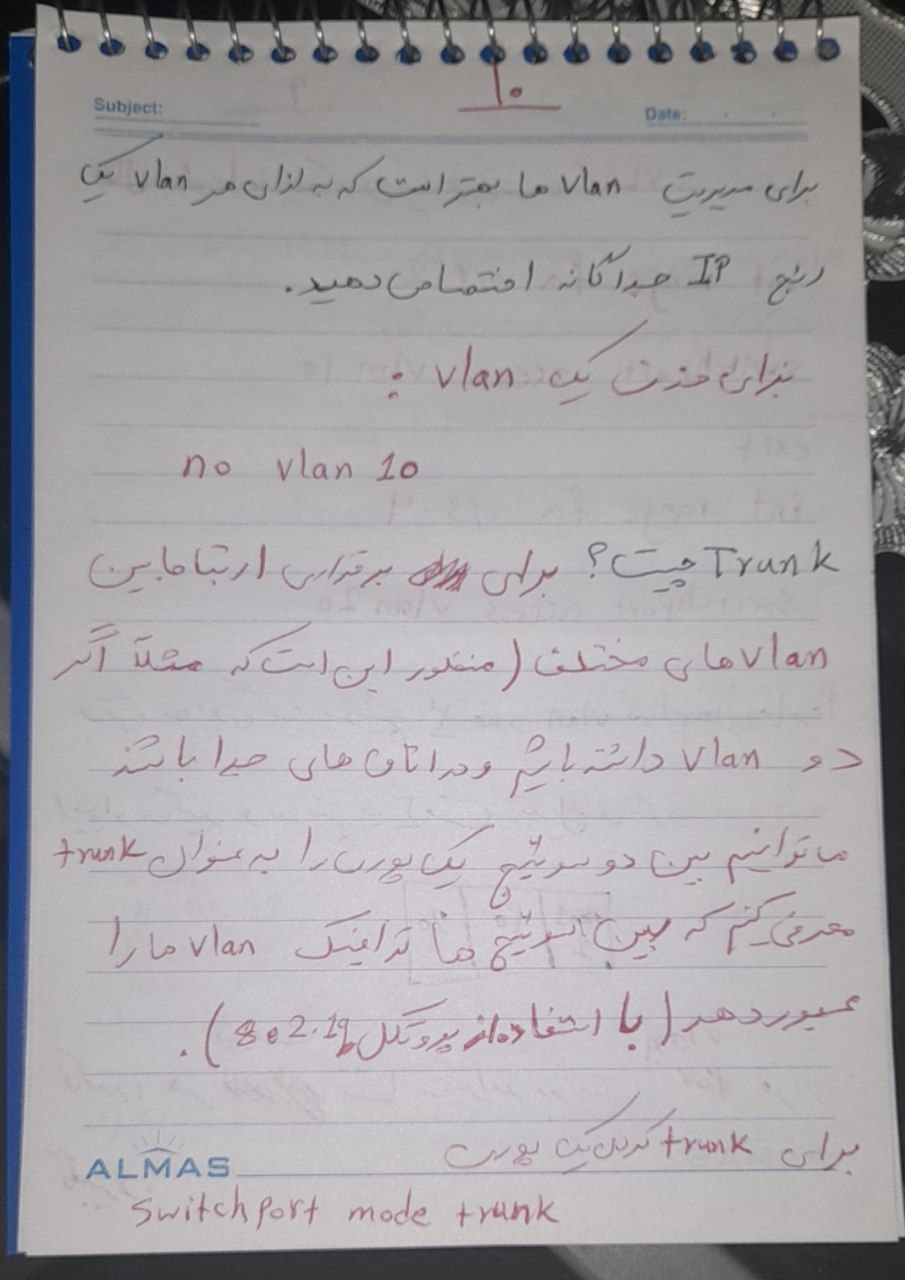 ۱۰
Subject:
Date:
برای مدیریت vlan ها بهتر است که به ازای هر vlan یک
رنج IP جداگانه اختصاص دهید.
برای حذف یک vlan :
no vlan 10
Trunk چیست؟ برای برقراری ارتباط بین
vlan های مختلف (منظور این است که مثلاً اگر
دو vlan داشته باشیم و در اتاق های جدا باشند
ما توانیم بین دو سوئیچ یک پورت را به عنوان trunk
معرفی کنیم که بین سوئیچ ها ترافیک vlan ها را
عبور دهد (با استفاده از پروتکل 802.1q).
برای trunk کردن یک پورت
ALMAS
switchport mode trunk